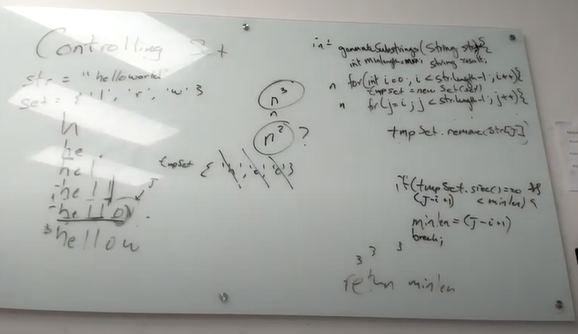 Controlling Set
str = "helloworld"
set = { 'l', 'r', 'w' }
h
he
hel
hell
hello
J
hellow
n³
n
n² ?
tmpSet {
int generateSubstrings(String str){
string result;
n for(int i=0; i < str.length-1; i++){
tmpSet = new Set(set)
n for(j=i; j < str.length-1; j++){
tmpSet.remove(str[j])
if(tmpSet.size()==0 &&
(J-i+1) < minlen) {
minlen = (J-i+1)
break;
}
}
}
return minlen